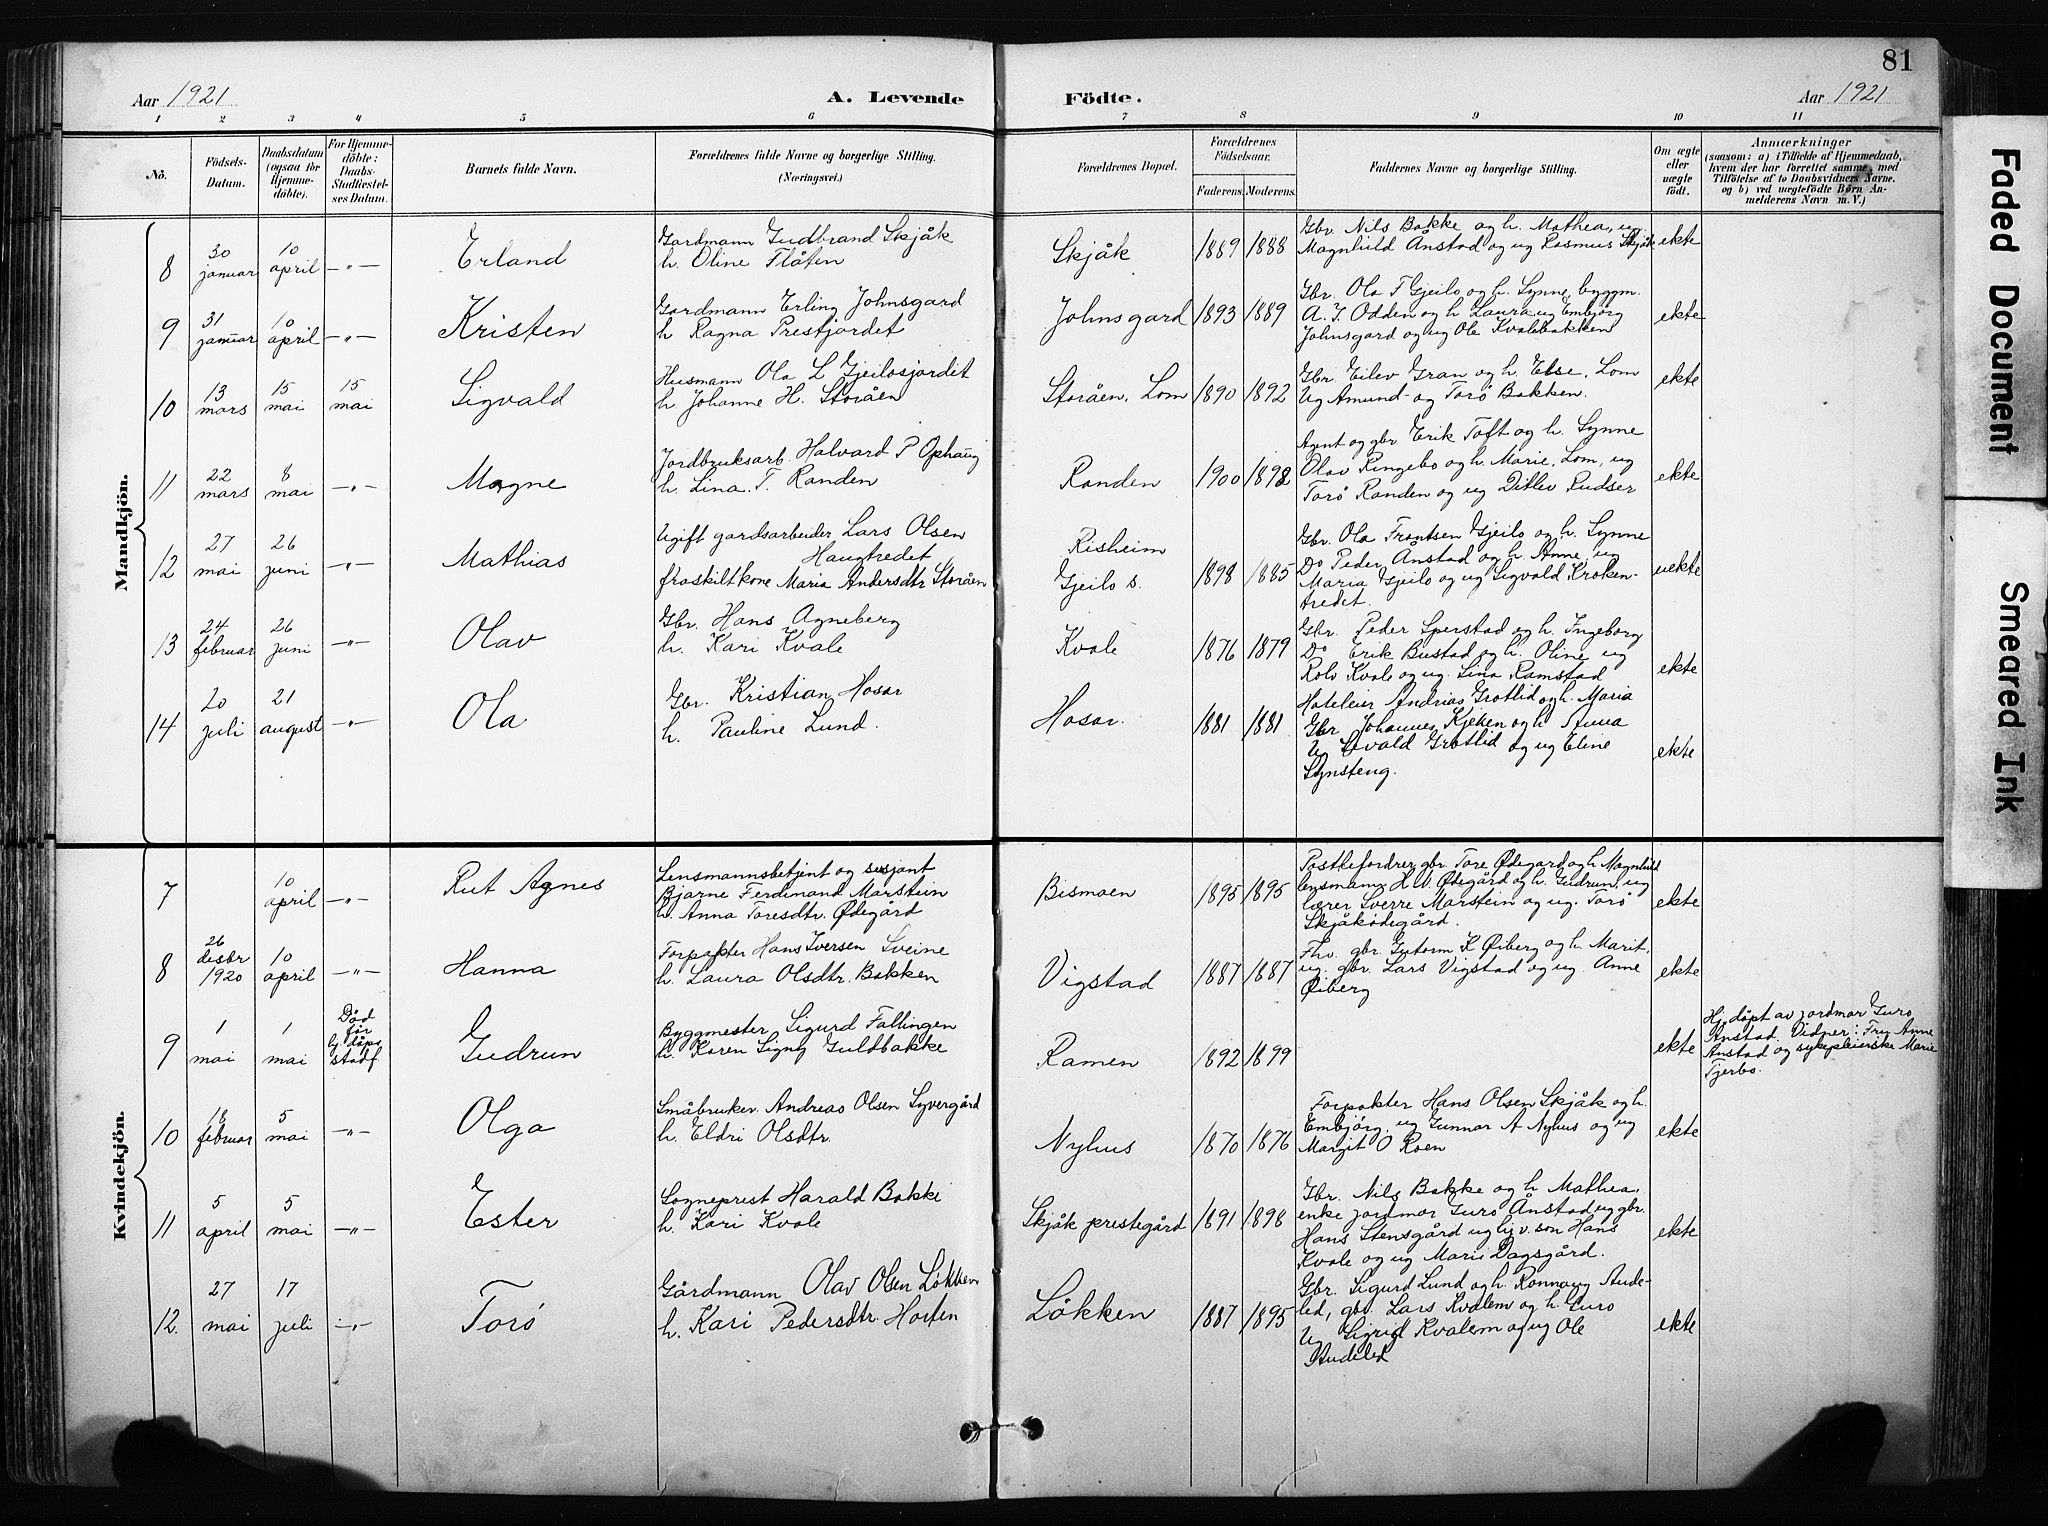 81
Aar 1921
A. Levende
Födte.
Aar 1921
1 2 3 4 5 6 7 8 9 10 11
No.
Födsels-Datum.
Daabsdatum (ogsaa for Hjemme-döbte).
For Hjemme-döbte: Daabs-Stadfæstel-ses Datum.
Barnets fulde Navn.
Forældrenes fulde Navne og borgerlige Stilling.
(Næringsvei.)
Forældrenes Bopæl.
Forældrenes Födselsaar.
Faderens. Moderens.
Faddernes Navne og borgerlige Stilling.
Om ægte eller uægte födt.
Anmærkninger
(saasom: a) i Tilfælde af Hjemmedaab, hvem der har forrettet samme, med Tilföielse af to Daabsvidners Navne, og b) ved uægtefödte Börn An-melderens Navn m. V.)
Mandkjön.
8
30 januar
10 april
-"-
Erland
Gardmann Gudbrand Skjåk
h. Oline Flåten
Skjåk
1889 1888
Gbr. Nils Bakke og h. Mathea, ug.
Magnhild Ånstad og ug Rasmus Skjåk
ekte
9
31 januar
10 april
-"-
Kristen
Gardmann Erling Johnsgard
h Ragna Prestjordet
Johnsgard
1893 1889
Gbr. Ola F Gjeilo og h. Synne, byggm.
A. I. Odden og h Laura ug Embjörg
Johnsgard og ug Ole Kvalebakken
ekte
10
13 mars
15 mai
15 mai
Sigvald
Husmann Ola L Gjeilosjordet
h. Johanne H. Storåen
Storåen, Lom
1890 1892
Gbr Eilev Gran og h. Else, Lom
Ug Amund og Torö Bakken.
ekte
11
22 mars
8 mai
-"-
Magne
Jordbruksarb. Halvard P Ophaug
h. Lina T. Randen
Randen
1900 1898
Agent og gbr Erik Toft og h. Synne
Olav Ringebo og h. Marie, Lom, ug
Torö Randen og ug Ditlev Rudser
ekte
12
27 mai
26 juni
-"-
Mathias
Ugift gardsarbeider Lars Olsen
Haugtredet
fraskilt kone Maria Andersdtr Storåen
Risheim
Gjeilo s.
1898 1885
Gbr. Ola Frantsen Gjeilo og h. Synne
Do Peder Ånstad og h. Anne, ug
Maria Gjeilo og ug Sigvald Kroken-
tredet.
uekte
13
24 februar
26 juni
-"-
Olav
Gbr. Hans Agneberg
h. Kari Kvale
Kvale
1876 1879
Gbr. Peder Sperstad og h. Ingeborg
Do Erik Bustad og h. Oline, ug
Rolv Kvale og ug. Lina Ramstad
ekte
14
20 juli
21 august
-"-
Ola
Gbr. Kristian Hosar
h. Pauline Lund.
Hosar.
1881 1881
Hoteleier Andrias Grotlid og h. Maria
Gbr Johannes Kjeken og h
Ug Grotlid og ug Eline
Lynsteng.
ekte
Kvindekjön.
7
10 april
-"-
Rut Agnes
Lensmannsbetjent og sersjant
Bjarne Ferdinand Marstein
h. Anna Toresdtr. Ødegård
Bismoen
1895 1895
Postbefordrer, gbr. Tore Ødegard og h. Magnhild
lensmann H. V. Ødegård og h. Gudrun, ug
lærer Sverre Marstein og ug. Torö
Skjåködegård.
ekte
8
26 desbr 1920
10 april
-"-
Hanna
Forpakter Hans Iversen Sveine
h. Laura Olsdtr. Bakken
Vigstad
1887 1887
Fhv. gbr. Gutorm K Øiberg og h. Marit,
ug. gbr. Lars Vigstad og ug. Anne
Øiberg
ekte
9
1 mai
1 mai
Död för stadf
Gudrun
Byggmester Sigurd Fallingen
h. Karen Signy Guldbakke
Ramen
1892 1899
ekte
Hj. döpt av jordmor Guro
Ånstad. Vidner: Fru Anne
Ånstad og sykepleierske Marie
Tjerbo.
10
18 februar
5 mai
-"-
Olga
Småbruker Andreas Olsen Syvergård
h. Eldri Olsdtr.
Nyhus
1870 1876
Forpakter Hans Olsen Skjåk og h.
Embjörg, ug Gunnar A Nyhus og ug
Margit O Roen
ekte
11
5 april
5 mai
-"-
Ester
Sogneprest Harald Bakke
h. Kari Kvale
Skjåk prestegård
1891 1898
Gbr. Nils Bakke og h Mathea,
enke jordmor Guro Ånstad ug gbr.
Hans Stensgård ug son Hans
Kvale og ug Marie Dagsgård.
ekte
12.
27 mai
17 juli
-"-
Torö
Gårdmann Olav Olsen Lökken
h. Kari Pedersdtr. Horten
Lökken
1887 1895
Gbr. Sigurd Lund og h. Rönnaug Aude-
led, gbr. Lars Kvalem og h. Guro
Ug Sigrid Kvalem og ug Ole
Audeled
ekte
Faded Document
Smeared Ink